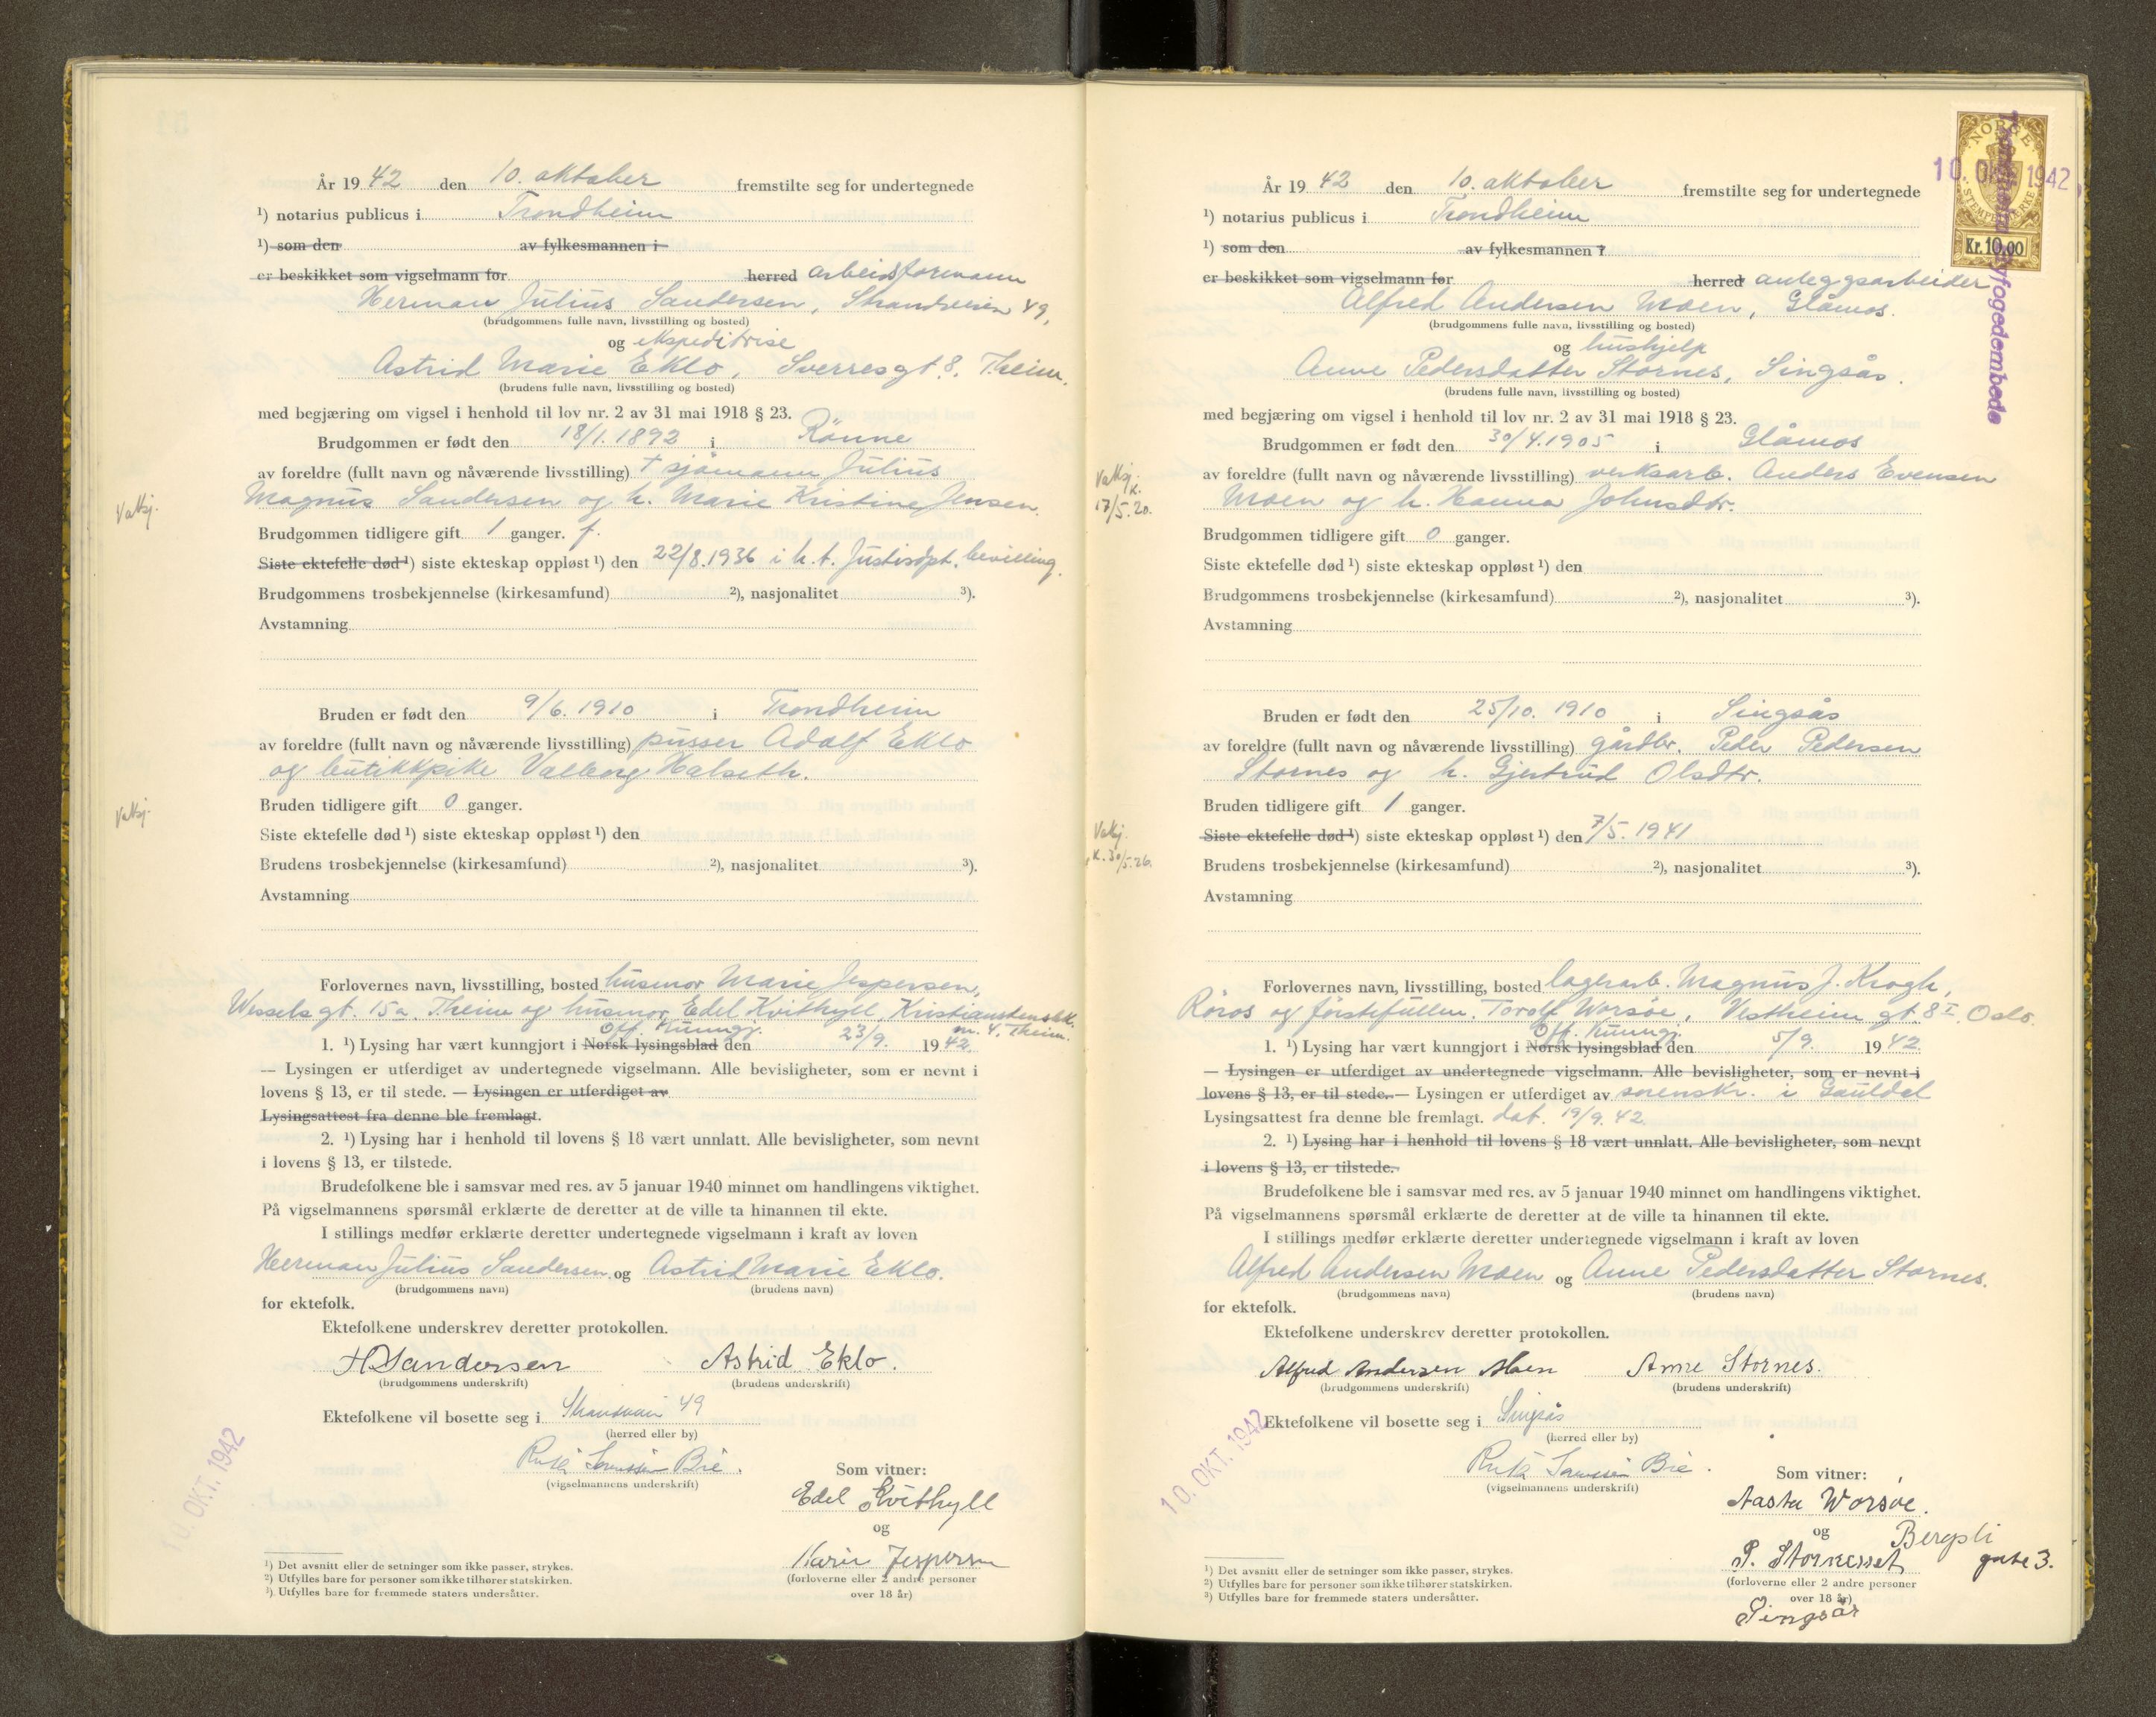 År 19 42 den 10. oktober fremstilte seg for undertegnede
¹) notarius publicus i Trondheim
¹) som den av fylkesmannen i
er beskikket som vigselmann for herred arbeidsformann
Herman Julius Sandersen, Strandveien 49,
(brudgommens fulle navn, livsstilling og bosted)
og ekspeditrise
Astrid Marie Eklo, Sverresgt. 8. Theim.
(brudens fulle navn, livsstilling og bosted)
med begjæring om vigsel i henhold til lov nr. 2 av 31 mai 1918 § 23.
Brudgommen er født den 18/1. 1892 i Rönne
av foreldre (fullt navn og nåværende livsstilling) † sjömann Julius
Magnus Sandersen og h. Marie Kristine Jensen.
Vatsj.
Brudgommen tidligere gift 1 ganger. f.
Siste ektefelle død ¹) siste ekteskap oppløst ¹) den 22/8.1936 i h.t. Justisdpt. bevilling.
Brudgommens trosbekjennelse (kirkesamfund) ²), nasjonalitet ³).
Avstamning
Bruden er født den 9/6. 1910 i Trondheim
av foreldre (fullt navn og nåværende livsstilling) pusser Adolf Eklo
og butikkpike Valborg Halseth.
Vatsj.
Bruden tidligere gift 0 ganger.
Siste ektefelle død ¹) siste ekteskap oppløst ¹) den
Brudens trosbekjennelse (kirkesamfund) ²), nasjonalitet ³).
Avstamning
Forlovernes navn, livsstilling, bosted husmor Marie Jespersen,
Wesselsgt. 15a. Theim og husmor Edel Kvithyll, Kristianstensbk.
Off. kunngj. m. 4. Theim.
1. ¹) Lysing har vært kunngjort i Norsk lysingsblad den 23/9. 1942.
— Lysingen er utferdiget av undertegnede vigselmann. Alle bevisligheter, som er nevnt i
lovens § 13, er til stede. — Lysingen er utferdiget av
Lysingsattest fra denne ble fremlagt.
2. ¹) Lysing har i henhold til lovens § 18 vært unnlatt. Alle bevisligheter, som nevnt
i lovens § 13, er tilstede.
Brudefolkene ble i samsvar med res. av 5 januar 1940 minnet om handlingens viktighet.
På vigselmannens spørsmål erklærte de deretter at de ville ta hinannen til ekte.
I stillings medfør erklærte deretter undertegnede vigselmann i kraft av loven
Herman Julius Sandersen og Astrid Marie Eklo.
(brudgommens navn) (brudens navn)
for ektefolk.
Ektefolkene underskrev deretter protokollen.
H Sandersen Astrid Eklo.
(brudgommens underskrift) (brudens underskrift)
Ektefolkene vil bosette seg i Strandveien 49
(herred eller by)
10. OKT. 1942
(vigselmannens underskrift)
Som vitner:
Edel Kvithyll
og
Marie Jespersen
(forloverne eller 2 andre personer
over 18 år)
¹) Det avsnitt eller de setninger som ikke passer, strykes.
²) Utfylles bare for personer som ikke tilhører statskirken.
³) Utfylles bare for fremmede staters undersåtter.
NORGE
STEMPELMERKE
Kr. 10,00
10. OKT. 1942
Trondheim byfogedembede
År 19 42 den 10. oktober fremstilte seg for undertegnede
¹) notarius publicus i Trondheim
¹) som den av fylkesmannen i
er beskikket som vigselmann for herred anleggsarbeider
Alfred Andersen Moen, Glåmos.
(brudgommens fulle navn, livsstilling og bosted)
og hushjelp
Anne Pedersdatter Stornes, Singsås.
(brudens fulle navn, livsstilling og bosted)
med begjæring om vigsel i henhold til lov nr. 2 av 31 mai 1918 § 23.
Brudgommen er født den 30/4.1905 i Glåmos
av foreldre (fullt navn og nåværende livsstilling) verksarb. Anders Evensen
Moen og h. Hanna Johnsdtr.
Vatsj. k.
17/5.20.
Brudgommen tidligere gift 0 ganger.
Siste ektefelle død ¹) siste ekteskap oppløst ¹) den
Brudgommens trosbekjennelse (kirkesamfund) ²), nasjonalitet ³).
Avstamning
Bruden er født den 25/10. 1910 i Singsås
av foreldre (fullt navn og nåværende livsstilling) gårdbr. Peder Pedersen
Stornes og h. Gjertrud Olsdtr.
Bruden tidligere gift 1 ganger.
Vatsj.
k. 30/5.26.
Siste ektefelle død ¹) siste ekteskap oppløst ¹) den 7/5. 1941
Brudens trosbekjennelse (kirkesamfund) ²), nasjonalitet ³).
Avstamning
Forlovernes navn, livsstilling, bosted lagerarb. Magnus J. Krogh,
Röros og förstefullm. Torolf Worsöe, Vestheim gt. 8 I, Oslo.
Off. kunngj.
1. ¹) Lysing har vært kunngjort i Norsk lysingsblad den 5/9. 1942.
— Lysingen er utferdiget av undertegnede vigselmann. Alle bevisligheter, som er nevnt i
lovens § 13, er til stede. — Lysingen er utferdiget av sorenskr. i Gauldal
Lysingsattest fra denne ble fremlagt. dat. 19/9.42.
2. ¹) Lysing har i henhold til lovens § 18 vært unnlatt. Alle bevisligheter, som nevnt
i lovens § 13, er tilstede.
Brudefolkene ble i samsvar med res. av 5 januar 1940 minnet om handlingens viktighet.
På vigselmannens spørsmål erklærte de deretter at de ville ta hinannen til ekte.
I stillings medfør erklærte deretter undertegnede vigselmann i kraft av loven
Alfred Andersen Moen og Anne Pedersdatter Stornes.
(brudgommens navn) (brudens navn)
for ektefolk.
Ektefolkene underskrev deretter protokollen.
Alfred Andersen Moen Anne Stornes.
(brudgommens underskrift) (brudens underskrift)
Ektefolkene vil bosette seg i Singsås
(herred eller by)
10. OKT. 1942
(vigselmannens underskrift)
Som vitner:
Aasta Worsöe.
og Bergsli
P. Storneset gate 3.
(forloverne eller 2 andre personer
over 18 år)
Singsås
¹) Det avsnitt eller de setninger som ikke passer, strykes.
²) Utfylles bare for personer som ikke tilhører statskirken.
³) Utfylles bare for fremmede staters undersåtter.